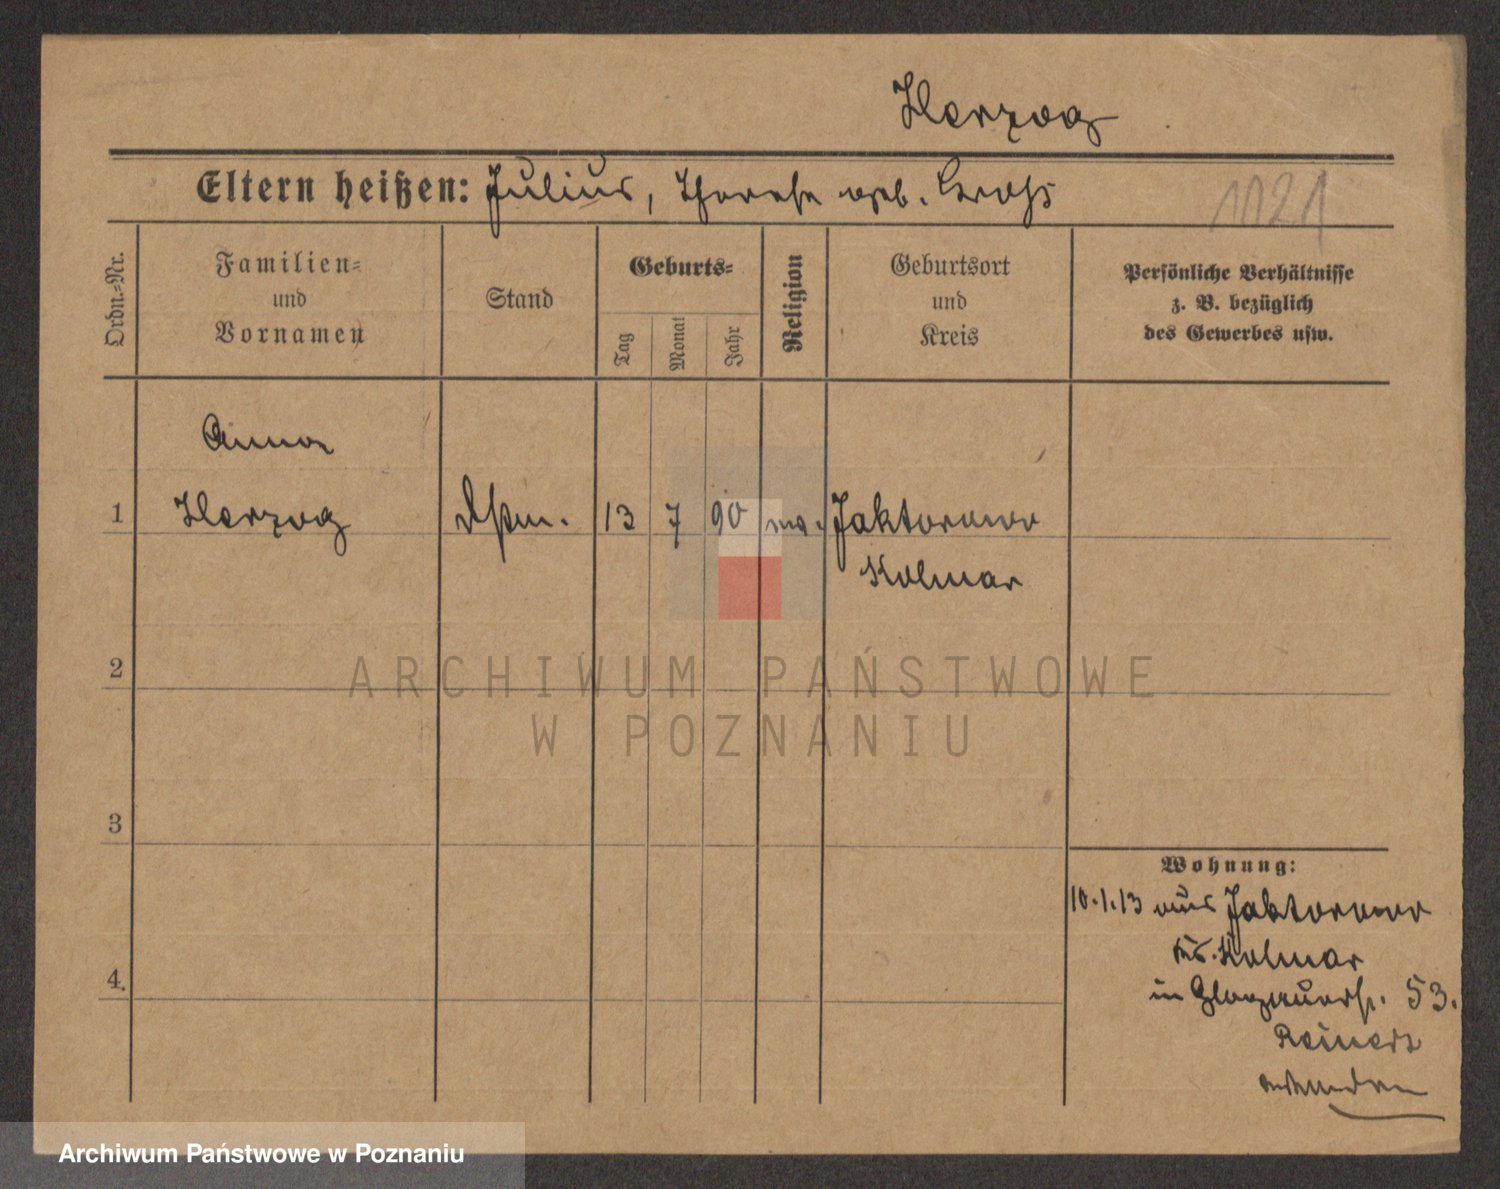 Herzog
Eltern heißen: Julius, Therese geb. Kroß
1121
Ordn.-Nr.
Familien-
und
Vornamen
Stand
Geburts-
Tag
Monat
Jahr
Religion
Geburtsort
und
Kreis
Persönliche Verhältnisse
z. B. bezüglich
des Gewerbes usw.
Anna
1 Herzog 13 7 90 Jaktorowo
Kolmar
2
ARCHIWUM PAŃSTWOWE
W POZNANIU
3
Wohnung:
10.1.13 aus Jaktorowo
Kr. Kolmar
4.
in Glogauerstr. 53.
Reinerts
Archiwum Państwowe w Poznaniu